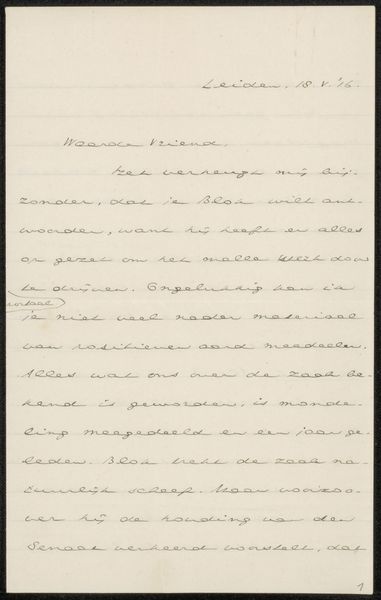 Leiden, 18.V.'16.
Waarde Vriend,
Het verheugt mij bij-
zonder, dat je Blok wilt ant-
woorden, want hij heeft er alles
op gezet om het malle door
te drijven. Ongelukkig kan ik
je niet veel nader materiaal
van positieven aard meedeelen.
Alles wat ons over de zaak be-
kend is geworden, is monde-
ling meegedeeld en een jaar ge-
leden. Blok trekt de zaak na-
tuurlijk scheef. Maar voorzoo-
ver hij de houding van den
Senaat verkeerd voorstelt, dat
1